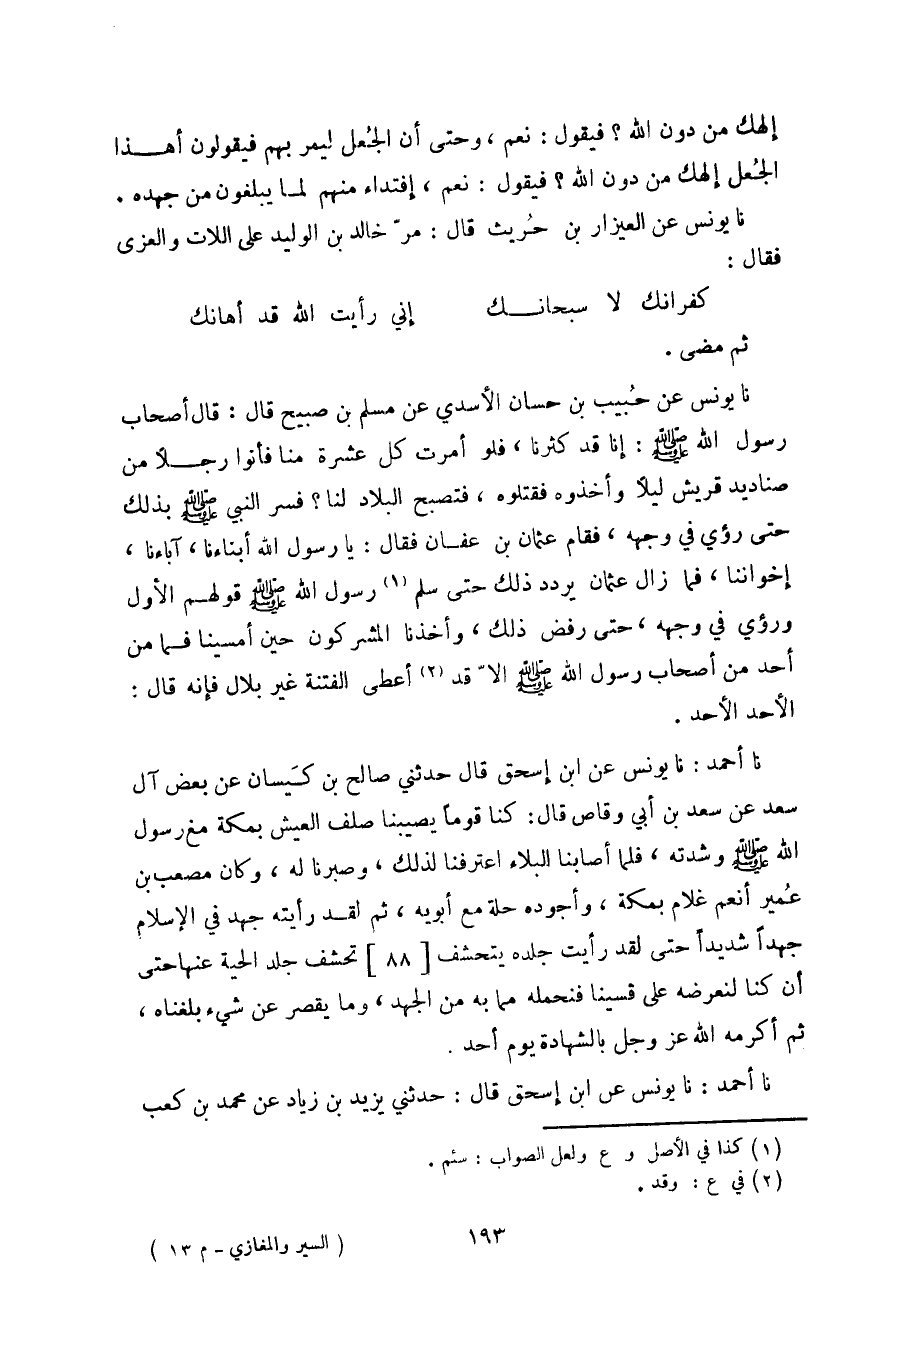 إلهك من دون الله ؟ فيقول : نعم ، وحتى أن الجُعل ليمر بهم فيقولون أهــذا
الجُعل إلهك من دون الله ؟ فيقول : نعم ، إفتداء منهم لمـا يبلغون من جهده .
نا يونس عن العيزار بن حُريث قال : مرّ خالد بن الوليد على اللات والعزى
فقال :
كفرانك لا سبحانــك إني رأيت الله قد أهانك
ثم مضى .
نا يونس عن حبُيب بن حسان الأسدي عن مسلم بن صبيح قال : قال أصحاب
رسول الله ﷺ : إنا قد كثرنا ، فلو أمرت كل عشرة منا فأنوا رجــلاً من
صناديد قريش ليلاً وأخذوه فقتلوه ، فتصبح البلاد لنا ؟ فسر النبي ﷺ بذلك
حتى رؤي في وجهه ، فقام عثمان بن عفـان فقال : يا رسول الله أبناءنا ، آباءنا ،
إخواننا ، فما زال عثمان يردد ذلك حتى سلم (١) رسول الله ﷺ قولهـم الأول
ورؤي في وجهه ، حتى رفض ذلك ، وأخذنا المشركون حين أمسينا فـما من
أحد من أصحاب رسول الله ﷺ الاّ قد (٢) أعطى الفتنة غير بلال فإنه قال :
الأحد الأحد .
نا أحمد : نا يونس عن ابن إسحق قال حدثني صالح بن كَيسان عن بعض آل
سعد عن سعد بن أبي وقاص قال : كنا قوماً يصيبنا صلف العيش بمكة مع رسول
الله ﷺ وشدته ، فلما أصابنا البلاء اعترفنا لذلك ، وصبرنا له ، وكان مصعب بن
عُمير أنعم غلام بمكة ، وأجوده حلة مع أبويه ، ثم لقـد رأيته جهد في الإسلام
جهداً شديداً حتى لقد رأيت جلده يتحشف [ ٨٨ ] تحشف جلد الحية عنها حتى
أن كنا لنعرضه على قسينا فنحمله مما به من الجهد ، وما يقصر عن شيء بلغناه ،
ثم أكرمه الله عز وجل بالشهادة يوم أحد .
نا أحمد : نا يونس عن ابن إسحق قال : حدثني يزيد بن زياد عن محمد بن كعب
(١) كذا في الأصل و ع ولعل الصواب : سئم .
(٢) في ع : وقد .
١٩٣
( السير والمغازي - م ١٣ )